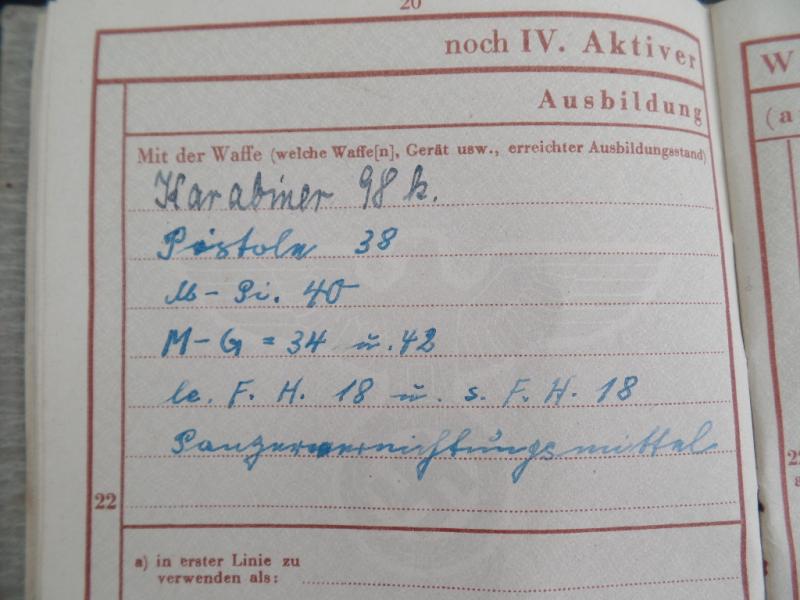 20
noch IV. Aktiver
W
Ausbildung
(a
Mit der Waffe (welche Waffe[n], Gerät usw., erreichter Ausbildungsstand)
Karabiner 98 k.
Pistole 38
M-Pi. 40
M-G = 34 u. 42
le. F. H. 18 u. s. F. H. 18
Panzervernichtungsmittel
22
a) in erster Linie zu
verwenden als: